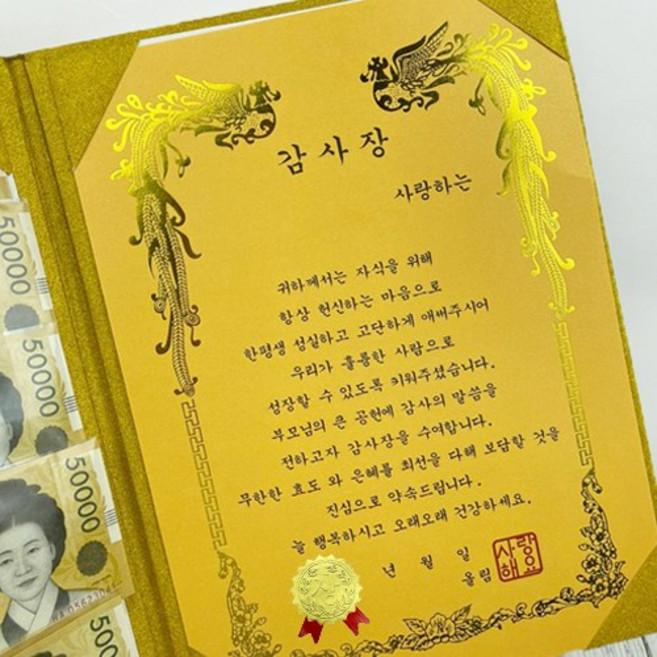 감사장
사랑하는
귀하께서는 자식을 위해
항상 헌신하는 마음으로
한평생 성실하고 고단하게 애써주시어
우리가 훌륭한 사람으로
성장할 수 있도록 키워주셨습니다.
부모님의 큰 공헌에 감사의 말씀을
전하고자 감사장을 수여합니다.
무한한 효도 와 은혜를 최선을 다해 보답할 것을
진심으로 약속드립니다.
늘 행복하시고 오래오래 건강하세요.
년 월 일
올림
사랑
해요
50000
50000
50000
500